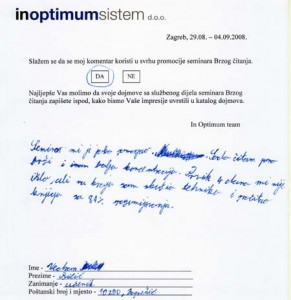 inoptimumsistem d.o.o.
Zagreb, 29.08. – 04.09.2008.
Slažem se da se moj komentar koristi u svrhu promocije seminara Brzog čitanja.
DA NE
Najljepše Vas molimo da svoje dojmove sa službenog dijela seminara Brzog
čitanja zapišete ispod, kako bismo Vaše impresije uvrstili u katalog dojmova.
In Optimum team
Seminar mi je jako pomogao. čitam puno
brži i imam bolju koncentraciju. mi nije
išlo, ali na kraju sam tehniku i
knjigu sa 84% razumijevanja.
Ime -
Prezime -
Zanimanje - učenik
Poštanski broj i mjesto - 10290, Zaprešić